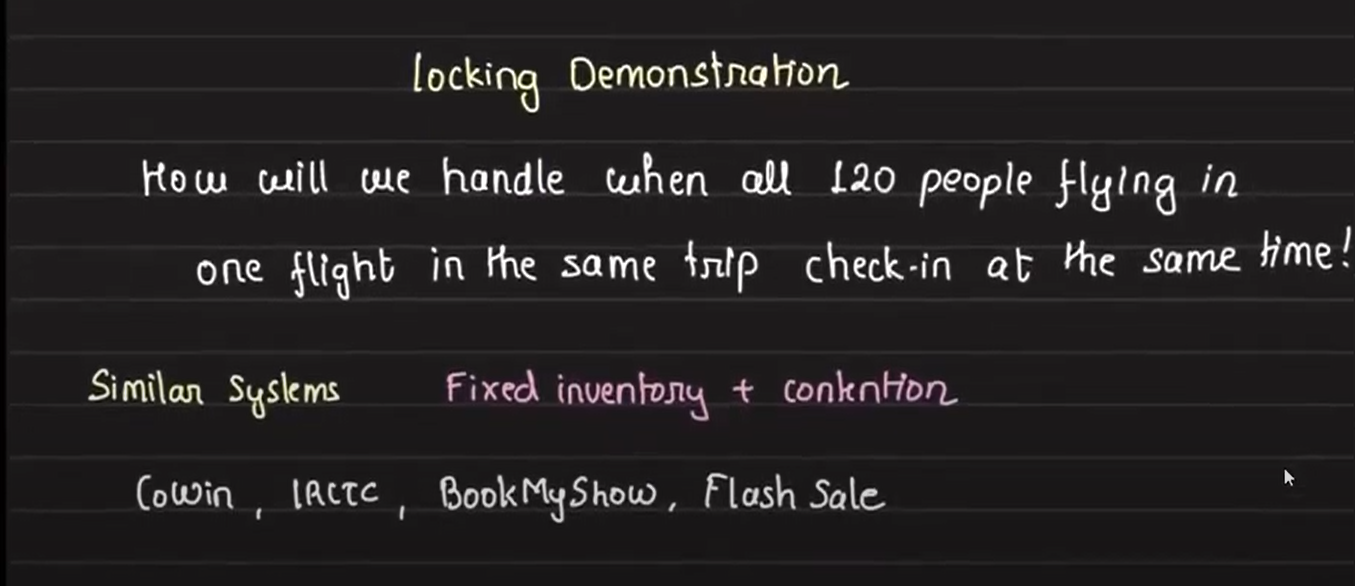 Locking Demonstration
How will we handle when all 120 people flying in
one flight in the same trip check-in at the same time!
Similar Systems Fixed inventory + contention
CoWin, IRCTC, BookMyShow, Flash Sale